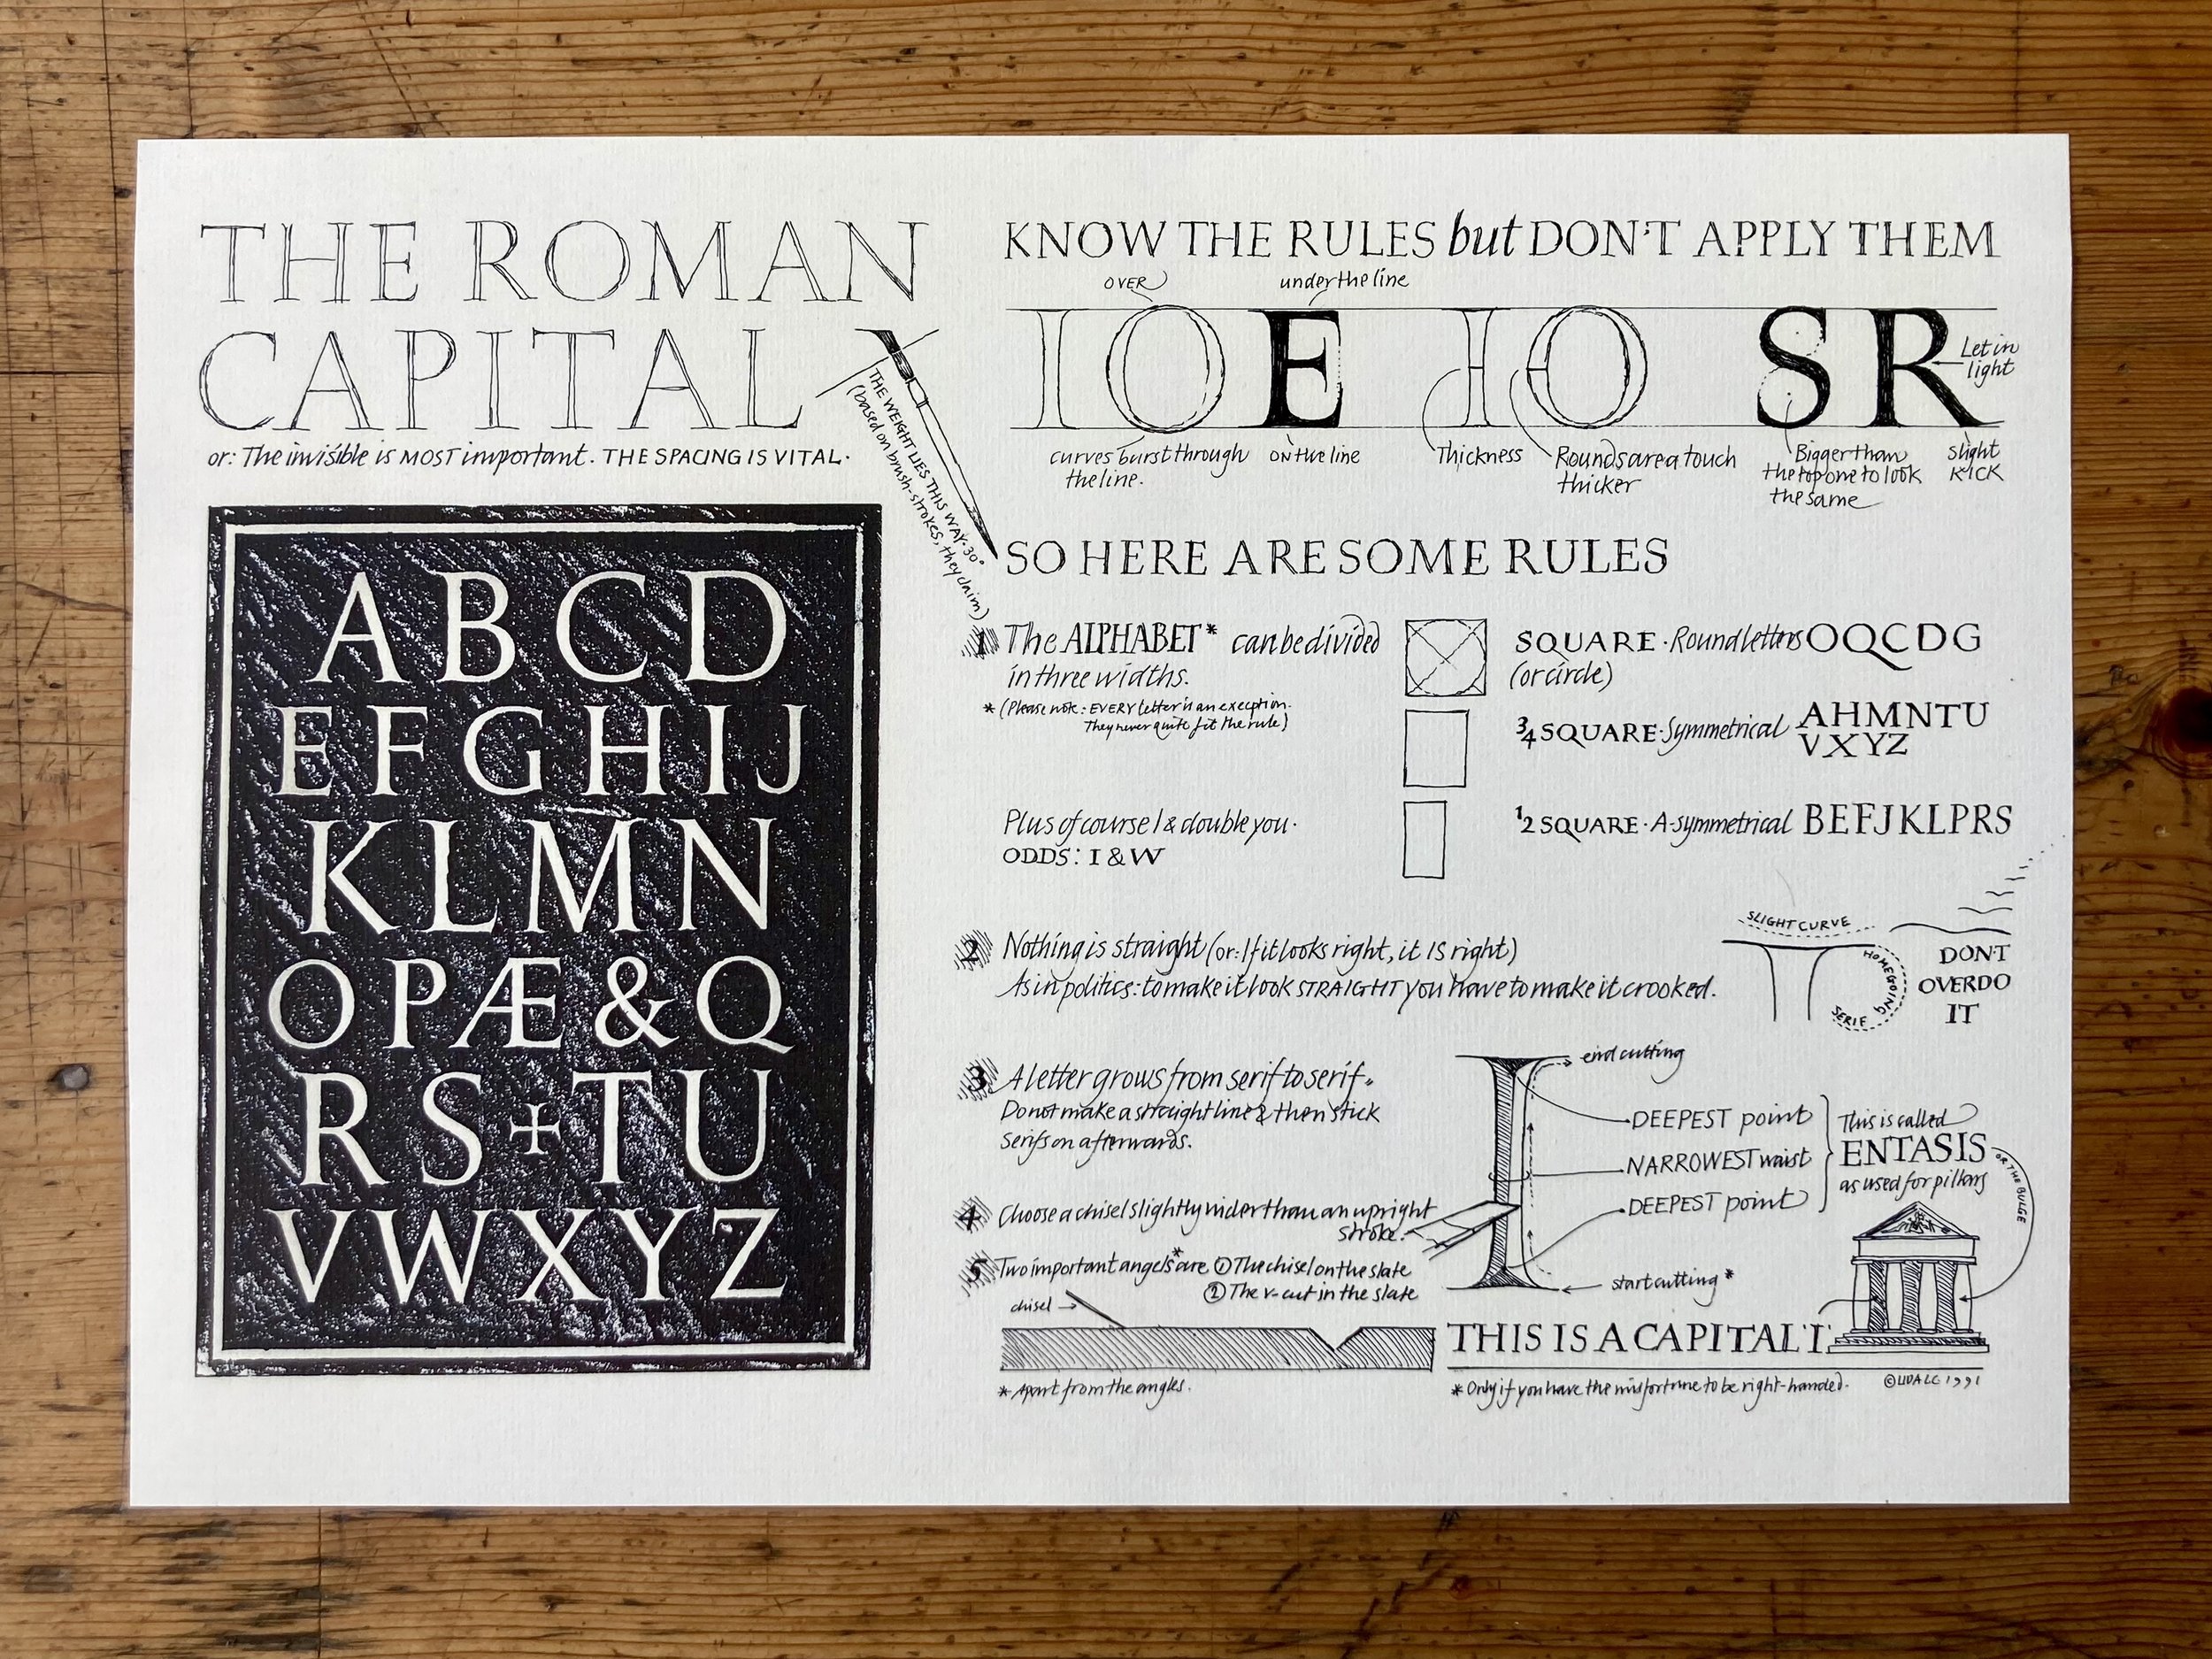 THE ROMAN
CAPITAL
or: The invisible is MOST important. THE SPACING IS VITAL.
THE WEIGHT LIES THIS WAY. 30°
(based on brush-strokes, they claim)
A B C D
E F G H I J
K L M N
O P Æ & Q
R S + T U
V W X Y Z
KNOW THE RULES but DON'T APPLY THEM
OVER
under the line
I O E I O S R
Let in
light
curves burst through
the line.
ON the line
Thickness
Rounds are a touch
thicker
Bigger than
the top one to look
the same
slight
KICK
SO HERE ARE SOME RULES
1 The ALPHABET* can be divided
in three widths.
* (Please note: EVERY letter is an exeption.
They never quite fit the rule)
SQUARE · Round letters OQCDG
(or circle)
3/4 SQUARE · Symmetrical AHMNTU
VXYZ
Plus of course I & double you.
ODDS: I & W
1/2 SQUARE · A-symmetrical BEFJKLPRS
2 Nothing is straight (or: If it looks right, it IS right)
As in politics: to make it look STRAIGHT you have to make it crooked.
SLIGHT CURVE
HOMEGOING
SERIF
DON'T
OVERDO
IT
3 A letter grows from serif to serif.
Do not make a straight line & then stick
serifs on afterwards.
end cutting
DEEPEST point
NARROWEST waist
DEEPEST point
This is called
ENTASIS
as used for pillars
OR THE BULGE
4 Choose a chisel slightly wider than an upright
stroke.
5 Two important angels* are ① The chisel on the slate
② The v-cut in the slate
start cutting *
chisel
THIS IS A CAPITAL 'I'.
* Apart from the angles.
* Only if you have the misfortune to be right-handed.
1991